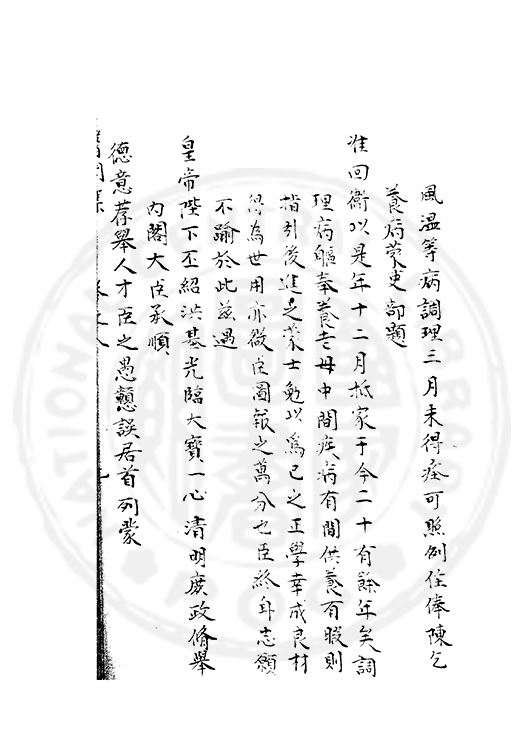 風溫等病調理三月未得痊可照例住俸陳乞
養病蒙吏部題
准回衛以是年十二月抵家于今二十有餘年矣調
理病軀奉養老母中間疾病有間供養有暇則
指引後進之蒙士勉以為己之正學幸成良材
得為世用亦微臣圖報之萬分也臣終身志願
不踰於此茲遇
皇帝陛下丕紹洪基光臨大寶一心清明庶政脩舉
內閣大臣承順
德意荐舉人才臣之愚戇誤居首列蒙
醫閭集 卷之八